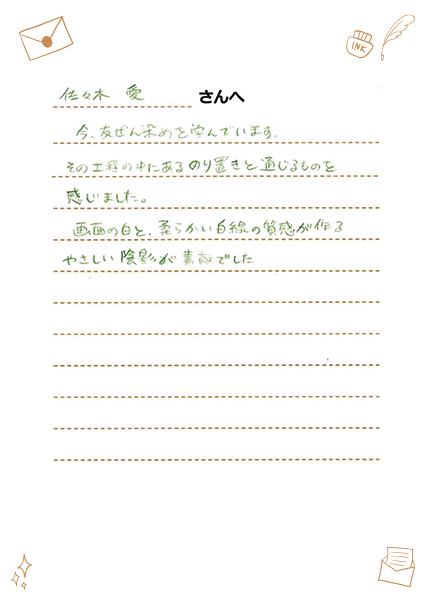 INK
佐々木 愛 さんへ
今、友ぜん染めを学んでいます。
その工程の中にあるのり置きと通じるものを
感じました。
画面の白と、柔らかい白線の質感が作る
やさしい陰影が素敵でした